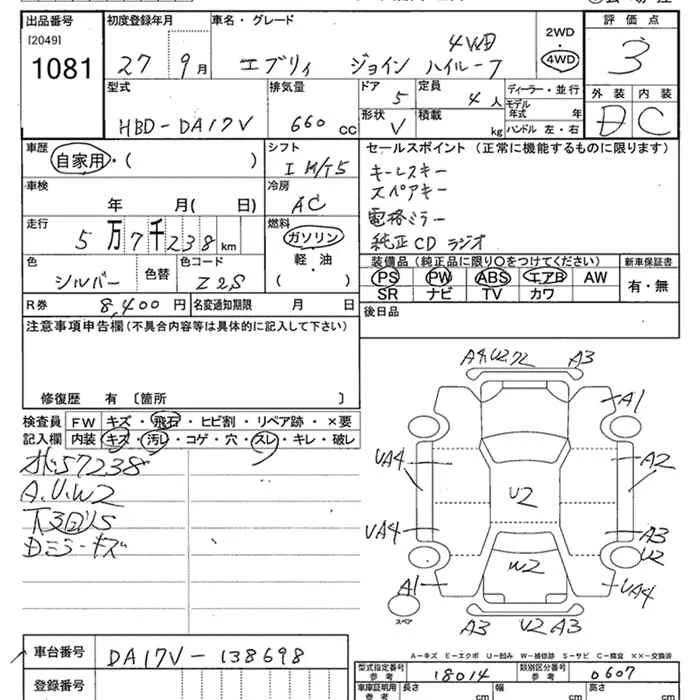 出品番号 初度登録年月 車名・グレード 2WD 評価点
[2049]
1081 27 9月 エブリィ ジョイン ハイルーフ 4WD 4WD 3
型式 排気量 ドア 5 定員 4人 ディーラー・並行 外装 内装
HBD-DA17V 660cc 形状 V 積載 kg モデル年式 年 D C
ハンドル 左・右
車歴 自家用・( ) シフト I M/T5 セールスポイント(正常に機能するものに限ります)
車検 冷房 キーレスキー
年 月( 日) AC スペアキー
走行 5万7千238km 燃料 電格ミラー
ガソリン 純正CDラジオ
色 シルバー 色替 色コード Z2S 軽・油 装備品(純正品に限り○をつけてください) 新車保証書
( ) PS PW ABS エアB AW 有・無
R券 8,400円 名変通知期限 月 日 SR ナビ TV カワ
注意事項申告欄(不具合内容等は具体的に記入して下さい) 後日品
修復歴 有〔箇所 〕
検査員 FW キズ・飛石・ヒビ割・リペア跡・×要
記入欄 内装 キズ・汚レ・コゲ・穴・スレ・キレ・破レ
57238
A.U.W2
下回りS
Dミラーキズ
A3
A1
UA4 A2
U2
UA4 A3
U2
W2
A1 UA4
スペア
A3 U2 A3
A=キズ E=エクボ U=凹み W=補修跡 S=サビ C=腐食 ××=交換済
車台番号 DA17V-138698
型式指定番号 参考 18014 類別区分番号 参考 0607
登録番号 車庫証明用 参考 長さ cm 幅 cm 高さ cm